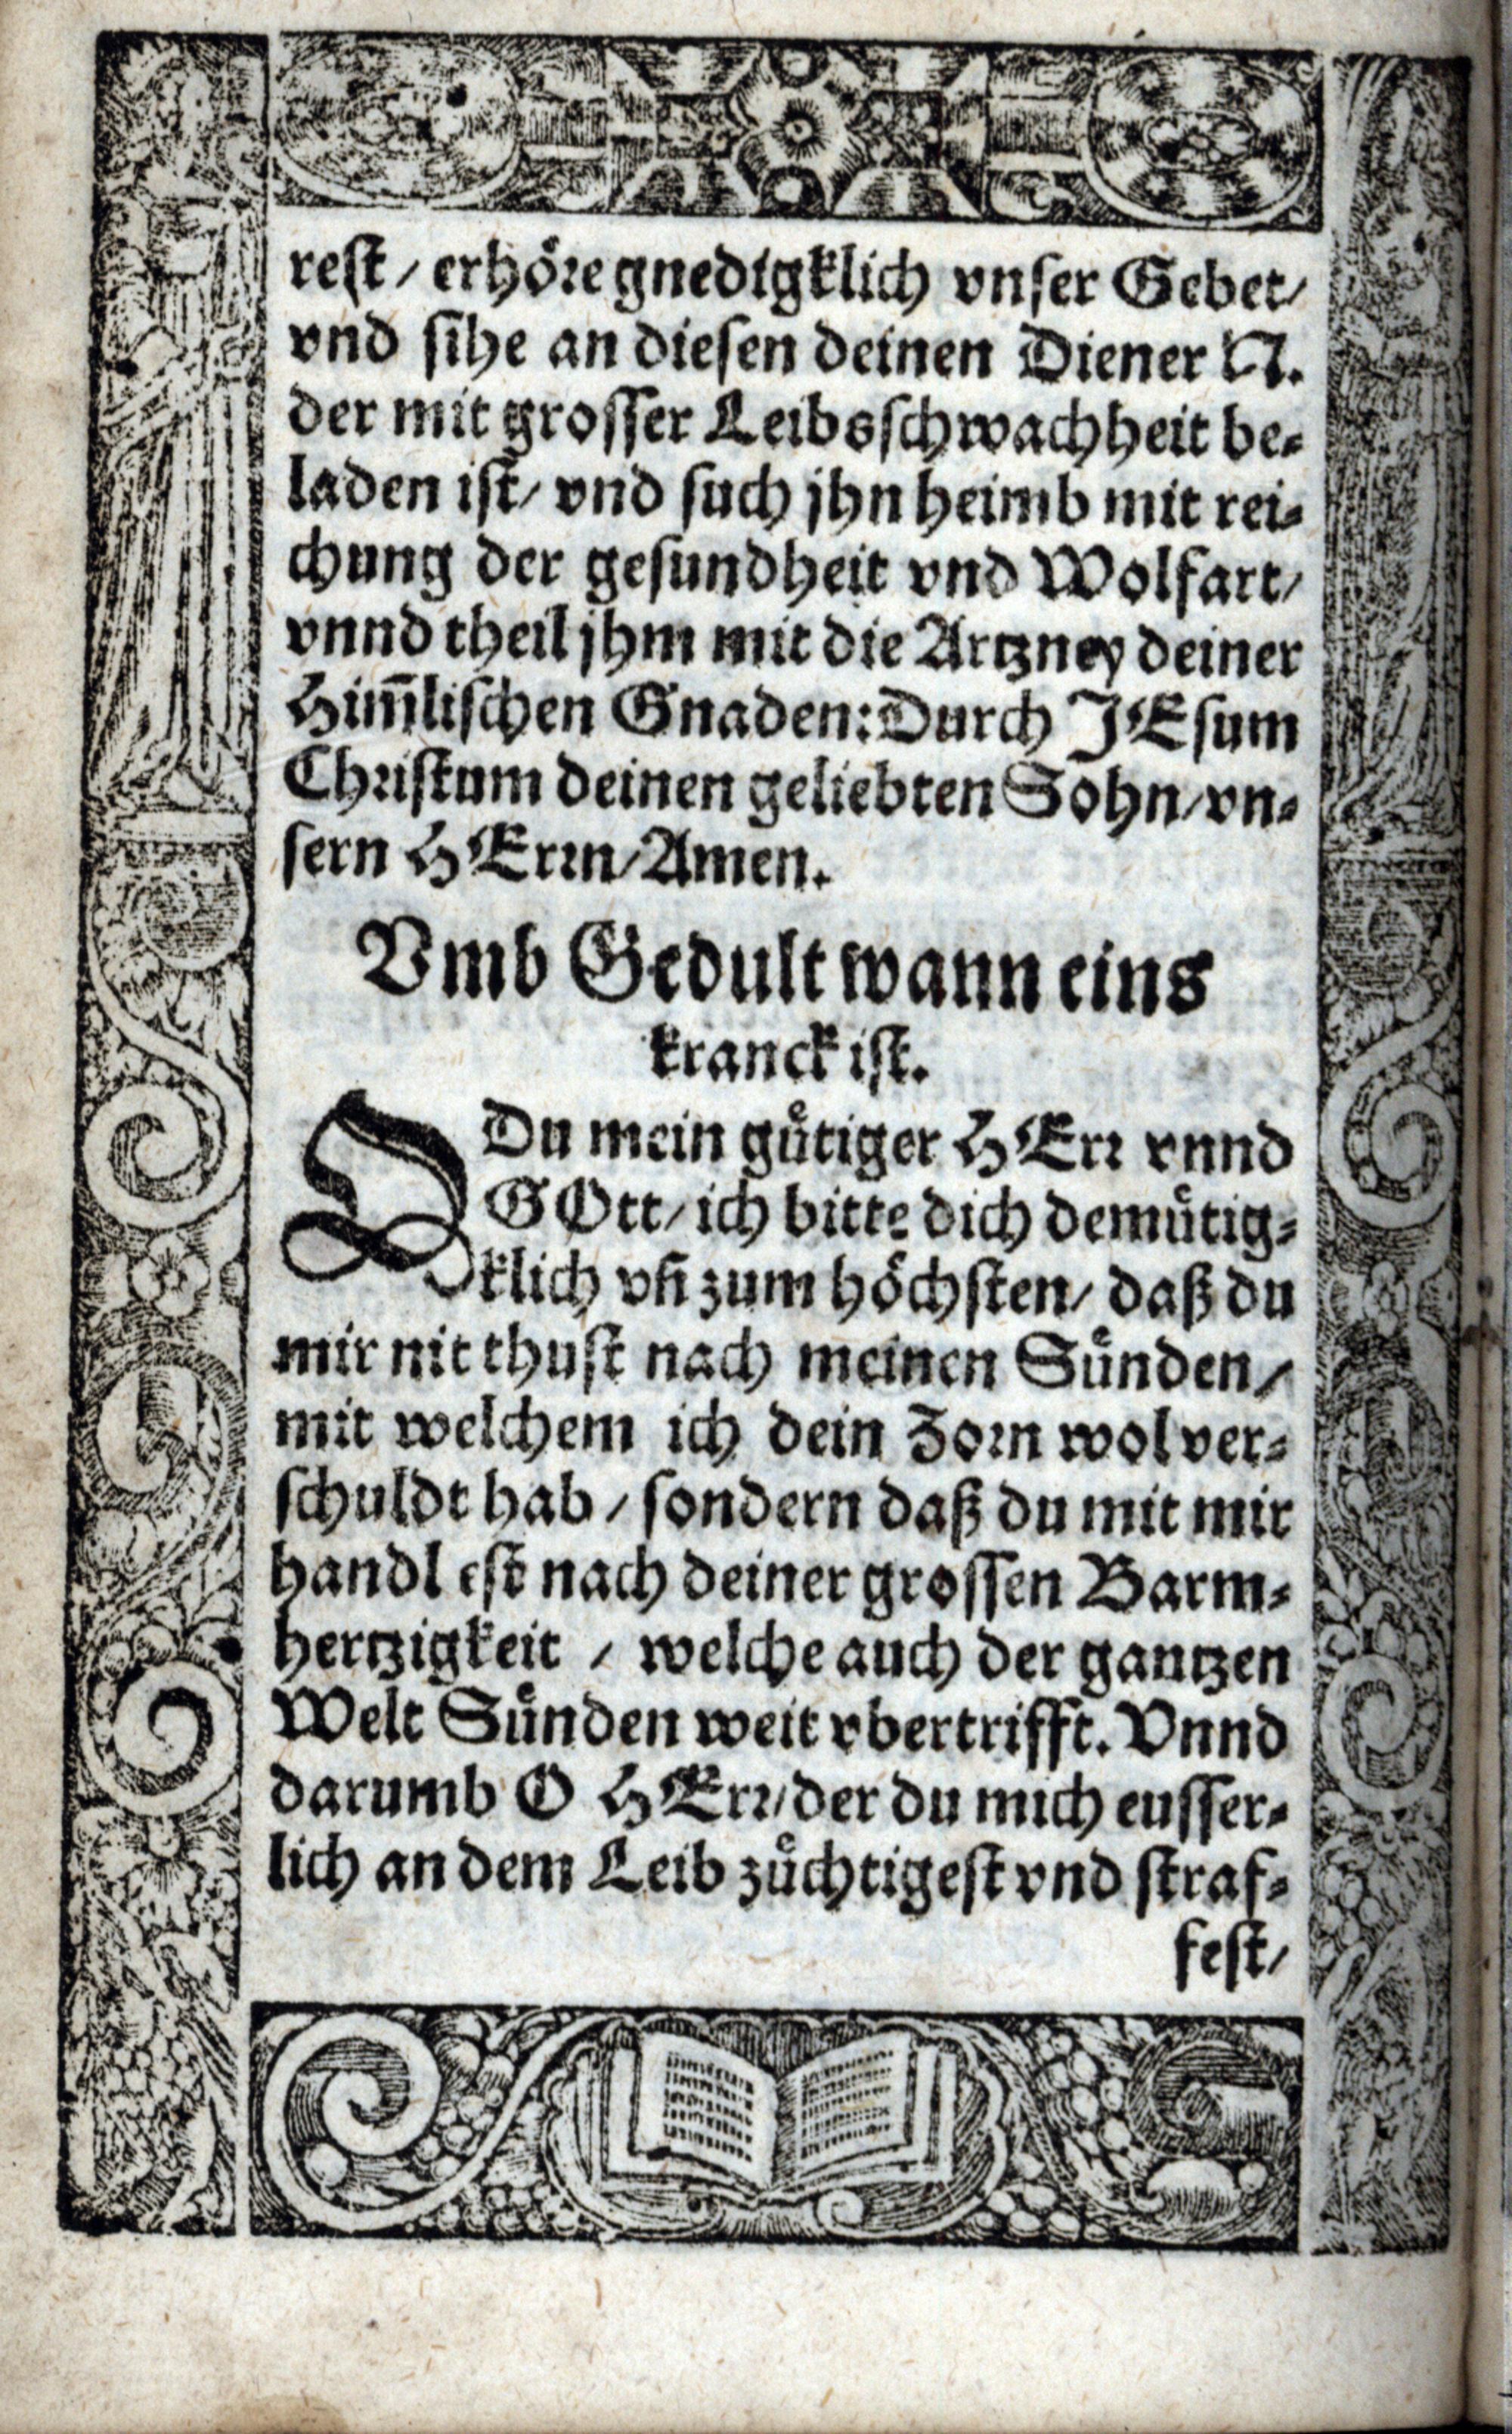 rest / erhöre gnedigklich vnser Gebet/
vnd sihe an diesen deinen Diener N.
der mit grosser Leibsschwachheit be-
laden ist/ vnd such jhn heimb mit rei-
chung der gesundheit vnd Wolfart/
vnnd theil jhm mit die Artzney deiner
Him̅lischen Gnaden: Durch JEsum
Christum deinen geliebten Sohn/ vn-
sern HErrn/ Amen.
Vmb Gedult wann eins
kranck ist.
O Du mein gütiger HErr vnnd
GOtt/ ich bitte dich demütig-
klich vn̅ zum höchsten/ daß du
mir nit thust nach meinen Sünden/
mit welchem ich dein Zorn wol ver-
schuldt hab / sondern daß du mit mir
handlest nach deiner grossen Barm-
hertzigkeit / welche auch der gantzen
Welt Sünden weit vbertrifft. Vnnd
darumb O HErr/ der du mich eusser-
lich an dem Leib züchtigest vnd straf-
fest/